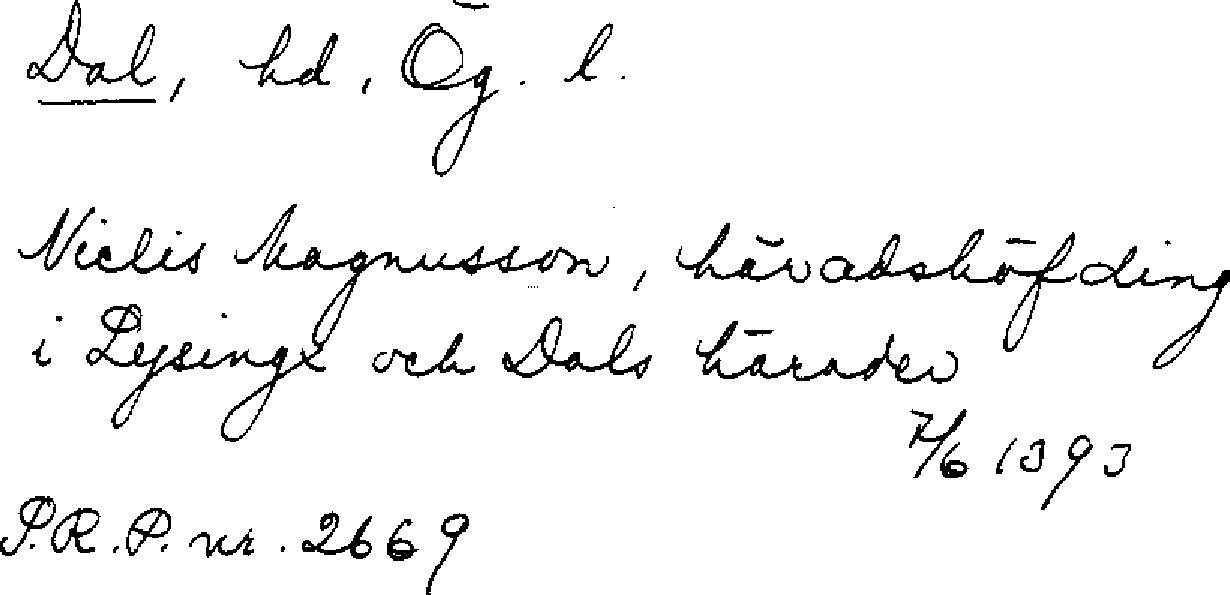 Dal, hd, Ög. l.
Niclis Magnusson, häradshöfding
i Lysings och Dals härader
7/6 1393
P.R.P. nr. 2669